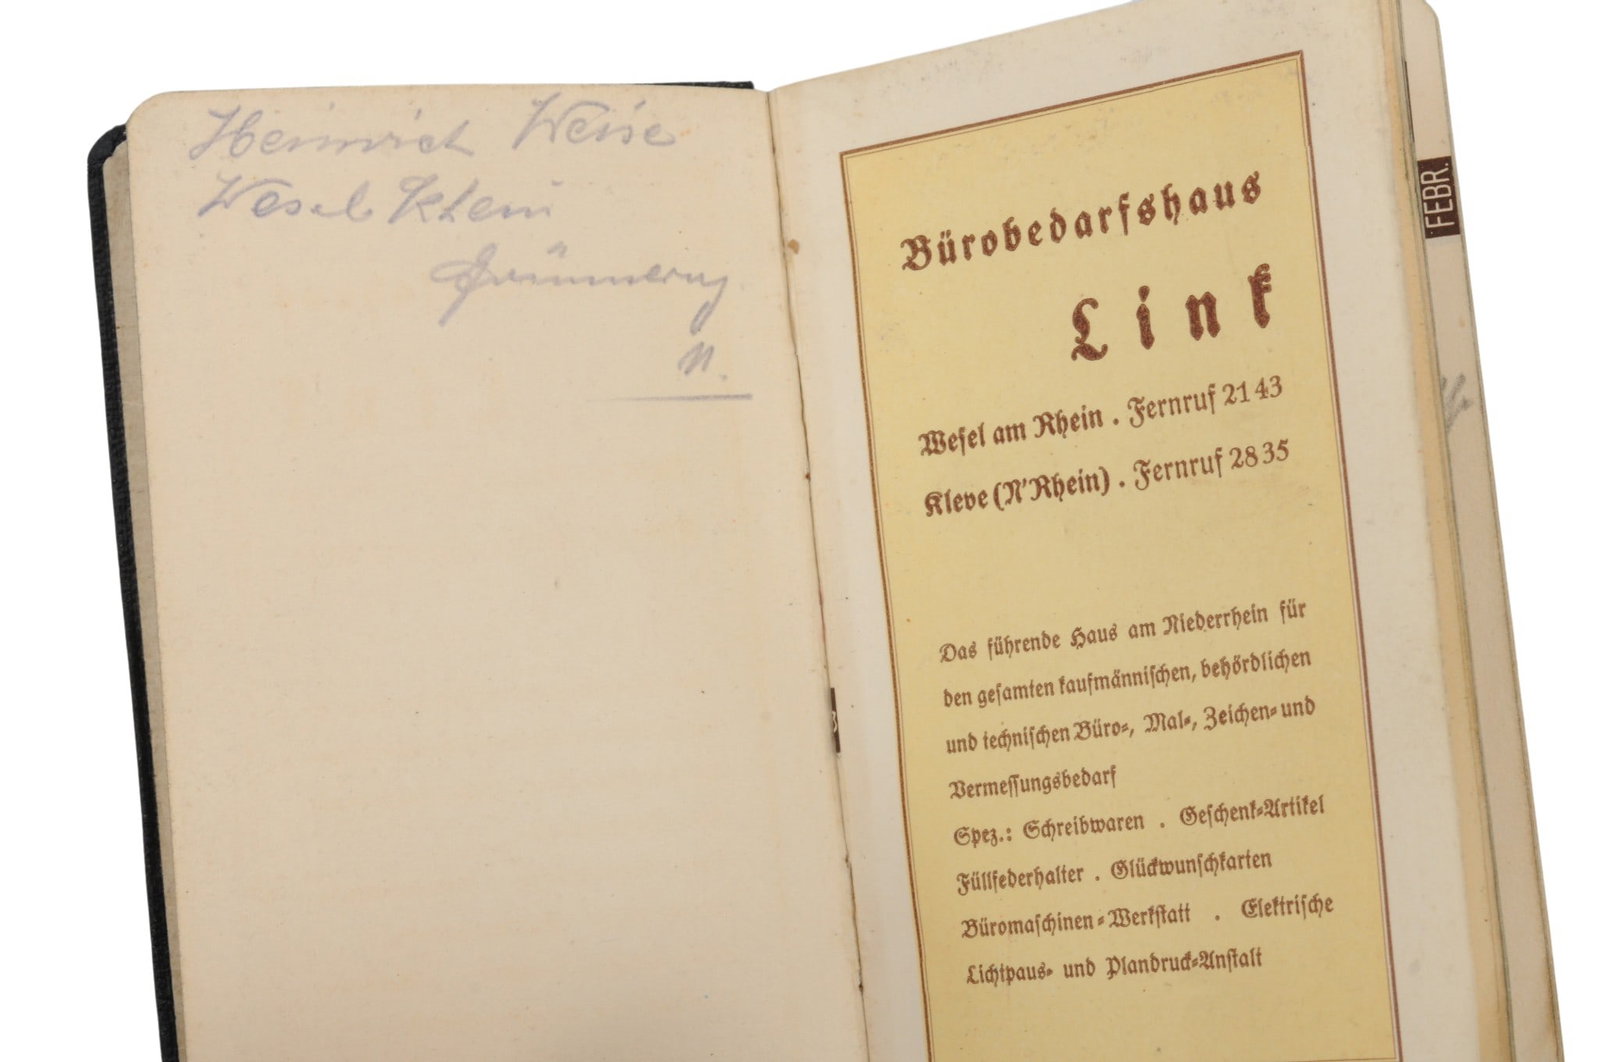 Heinrich Weise
Wesel Rhein
n.
Bürobedarfshaus
Link
Wesel am Rhein . Fernruf 2143
Kleve (N'Rhein) . Fernruf 2835
Das führende Haus am Niederrhein für
den gesamten kaufmännischen, behördlichen
und technischen Büro-, Mal-, Zeichen- und
Vermessungsbedarf
Spez.: Schreibwaren . Geschenk-Artikel
Füllfederhalter . Glückwunschkarten
Büromaschinen-Werkstatt . Elektrische
Lichtpaus- und Plandruck-Anstalt
FEBR.